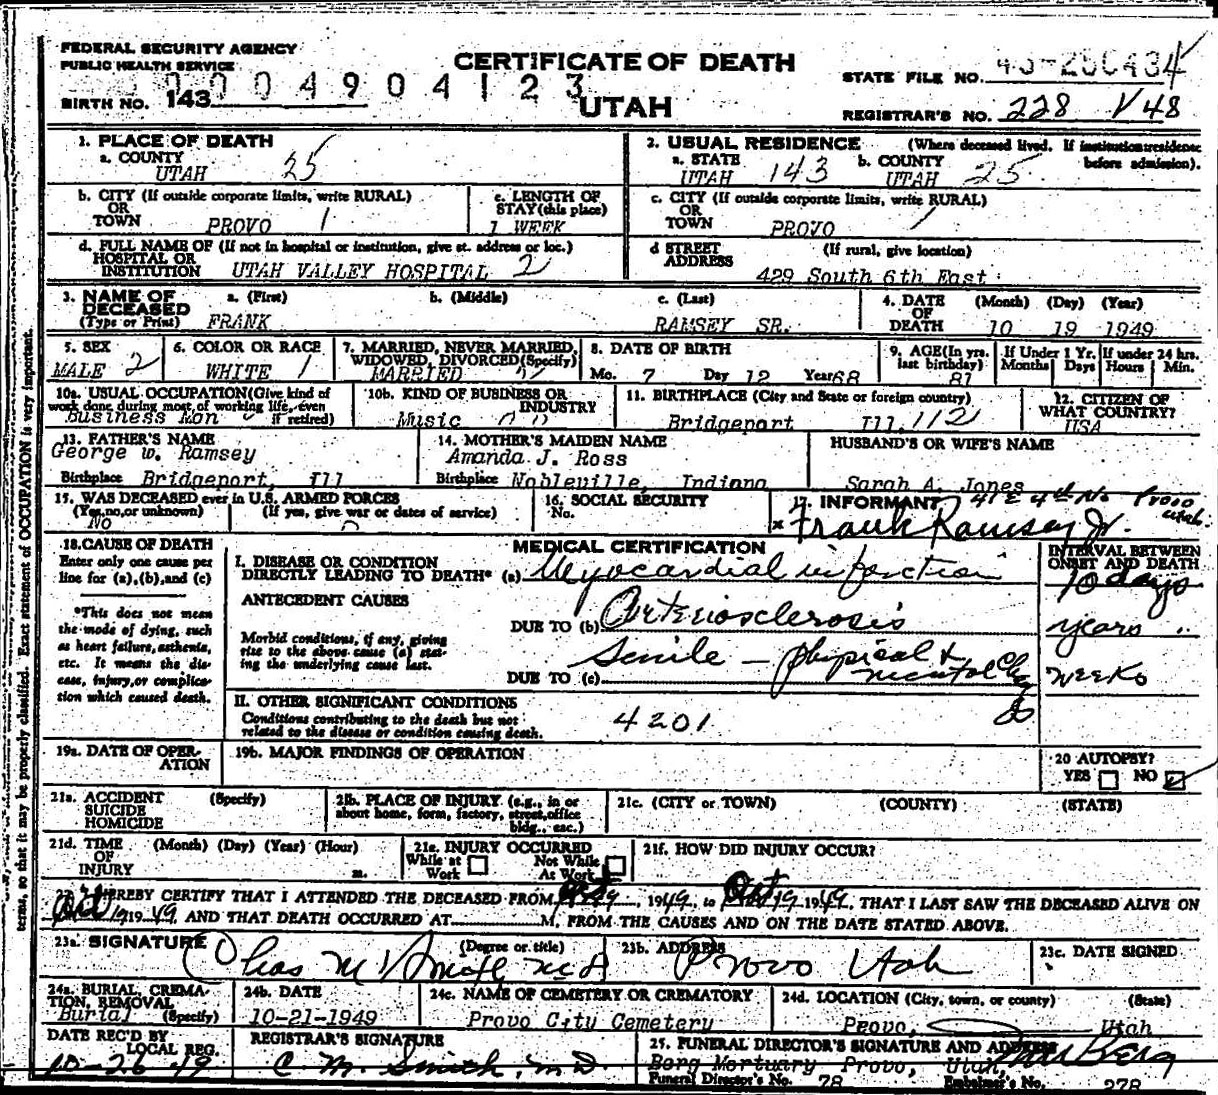 FEDERAL SECURITY AGENCY
PUBLIC HEALTH SERVICE
CERTIFICATE OF DEATH
UTAH
004904123
BIRTH NO. 143
STATE FILE NO.
REGISTRAR'S NO. 228 V48
1. PLACE OF DEATH
a. COUNTY
UTAH 25
2. USUAL RESIDENCE (Where deceased lived. If institution:residence before admission).
a. STATE b. COUNTY
UTAH 143 UTAH 25
b. CITY (If outside corporate limits, write RURAL)
OR
TOWN PROVO 1
c. LENGTH OF
STAY (this place)
1 WEEK
c. CITY (If outside corporate limits, write RURAL)
OR
TOWN PROVO 1
d. FULL NAME OF (If not in hospital or institution, give st. address or loc.)
HOSPITAL OR
INSTITUTION UTAH VALLEY HOSPITAL 2
d STREET (If rural, give location)
ADDRESS
429 South 6th East
3. NAME OF a. (First) b. (Middle) c. (Last)
DECEASED
(Type or Print) FRANK RAMSEY SR.
4. DATE (Month) (Day) (Year)
OF
DEATH 10 19 1949
5. SEX
MALE 2
6. COLOR OR RACE
WHITE 1
7. MARRIED, NEVER MARRIED,
WIDOWED, DIVORCED(Specify)
MARRIED
8. DATE OF BIRTH
Mo. 7 Day 12 Year 68
9. AGE(In yrs.
last birthday)
81
If Under 1 Yr.
Months Days
If under 24 hrs.
Hours Min.
10a. USUAL OCCUPATION(Give kind of
work done during most of working life, even
if retired)
Business Man
10b. KIND OF BUSINESS OR
INDUSTRY
Music
11. BIRTHPLACE (City and State or foreign country)
Bridgeport Ill. 112
12. CITIZEN OF
WHAT COUNTRY?
USA
13. FATHER'S NAME
George W. Ramsey
Birthplace Bridgeport, Ill
14. MOTHER'S MAIDEN NAME
Amanda J. Ross
Birthplace Nobleville, Indiana
HUSBAND'S OR WIFE'S NAME
Sarah A. Jones
15. WAS DECEASED ever in U.S. ARMED FORCES
(Yes, no, or unknown) (If yes, give war or dates of service)
No
16. SOCIAL SECURITY
No.
17. INFORMANT 41 E 4th No Provo
Utah.
x Frank Ramsey Jr.
18. CAUSE OF DEATH
Enter only one cause per
line for (a), (b), and (c)
*This does not mean
the mode of dying, such
as heart failure, asthenia,
etc. It means the dis-
ease, injury, or complica-
tion which caused death.
MEDICAL CERTIFICATION
I. DISEASE OR CONDITION
DIRECTLY LEADING TO DEATH* (a) Myocardial infarction
ANTECEDENT CAUSES
DUE TO (b) Arteriosclerosis
Morbid conditions, if any, giving
rise to the above cause (a) stat-
ing the underlying cause last.
DUE TO (c) Senile - physical &
mental
INTERVAL BETWEEN
ONSET AND DEATH
10 days
years
weeks
II. OTHER SIGNIFICANT CONDITIONS
Conditions contributing to the death but not
related to the disease or condition causing death.
4201
19a. DATE OF OPER-
ATION
19b. MAJOR FINDINGS OF OPERATION
20 AUTOPSY?
YES NO
21a. ACCIDENT (Specify)
SUICIDE
HOMICIDE
21b. PLACE OF INJURY (e.g., in or
about home, farm, factory, street, office
bldg., etc.)
21c. (CITY or TOWN) (COUNTY) (STATE)
21d. TIME (Month) (Day) (Year) (Hour)
OF
INJURY m.
21e. INJURY OCCURRED
While at Work Not While At Work
21f. HOW DID INJURY OCCUR?
22. I HEREBY CERTIFY THAT I ATTENDED THE DECEASED FROM Oct, 1949, to Oct 19 1949, THAT I LAST SAW THE DECEASED ALIVE ON
Oct 19 1949 AND THAT DEATH OCCURRED AT M, FROM THE CAUSES AND ON THE DATE STATED ABOVE.
23a. SIGNATURE (Degree or title)
Chas M Smith MD
23b. ADDRESS
Provo Utah
23c. DATE SIGNED
24a. BURIAL, CREMA-
TION, REMOVAL
Burial (Specify)
24b. DATE
10-21-1949
24c. NAME OF CEMETERY OR CREMATORY
Provo City Cemetery
24d. LOCATION (City, town, or county) (State)
Provo, Utah
DATE REC'D BY
LOCAL REG.
10-26-49
REGISTRAR'S SIGNATURE
C. M. Smith, M.D.
25. FUNERAL DIRECTOR'S SIGNATURE AND ADDRESS
Berg Mortuary Provo, Utah, Berg
Funeral Director's No. 78 Embalmer's No. 278
terms, so that it may be properly classified. Exact statement of OCCUPATION is very important.